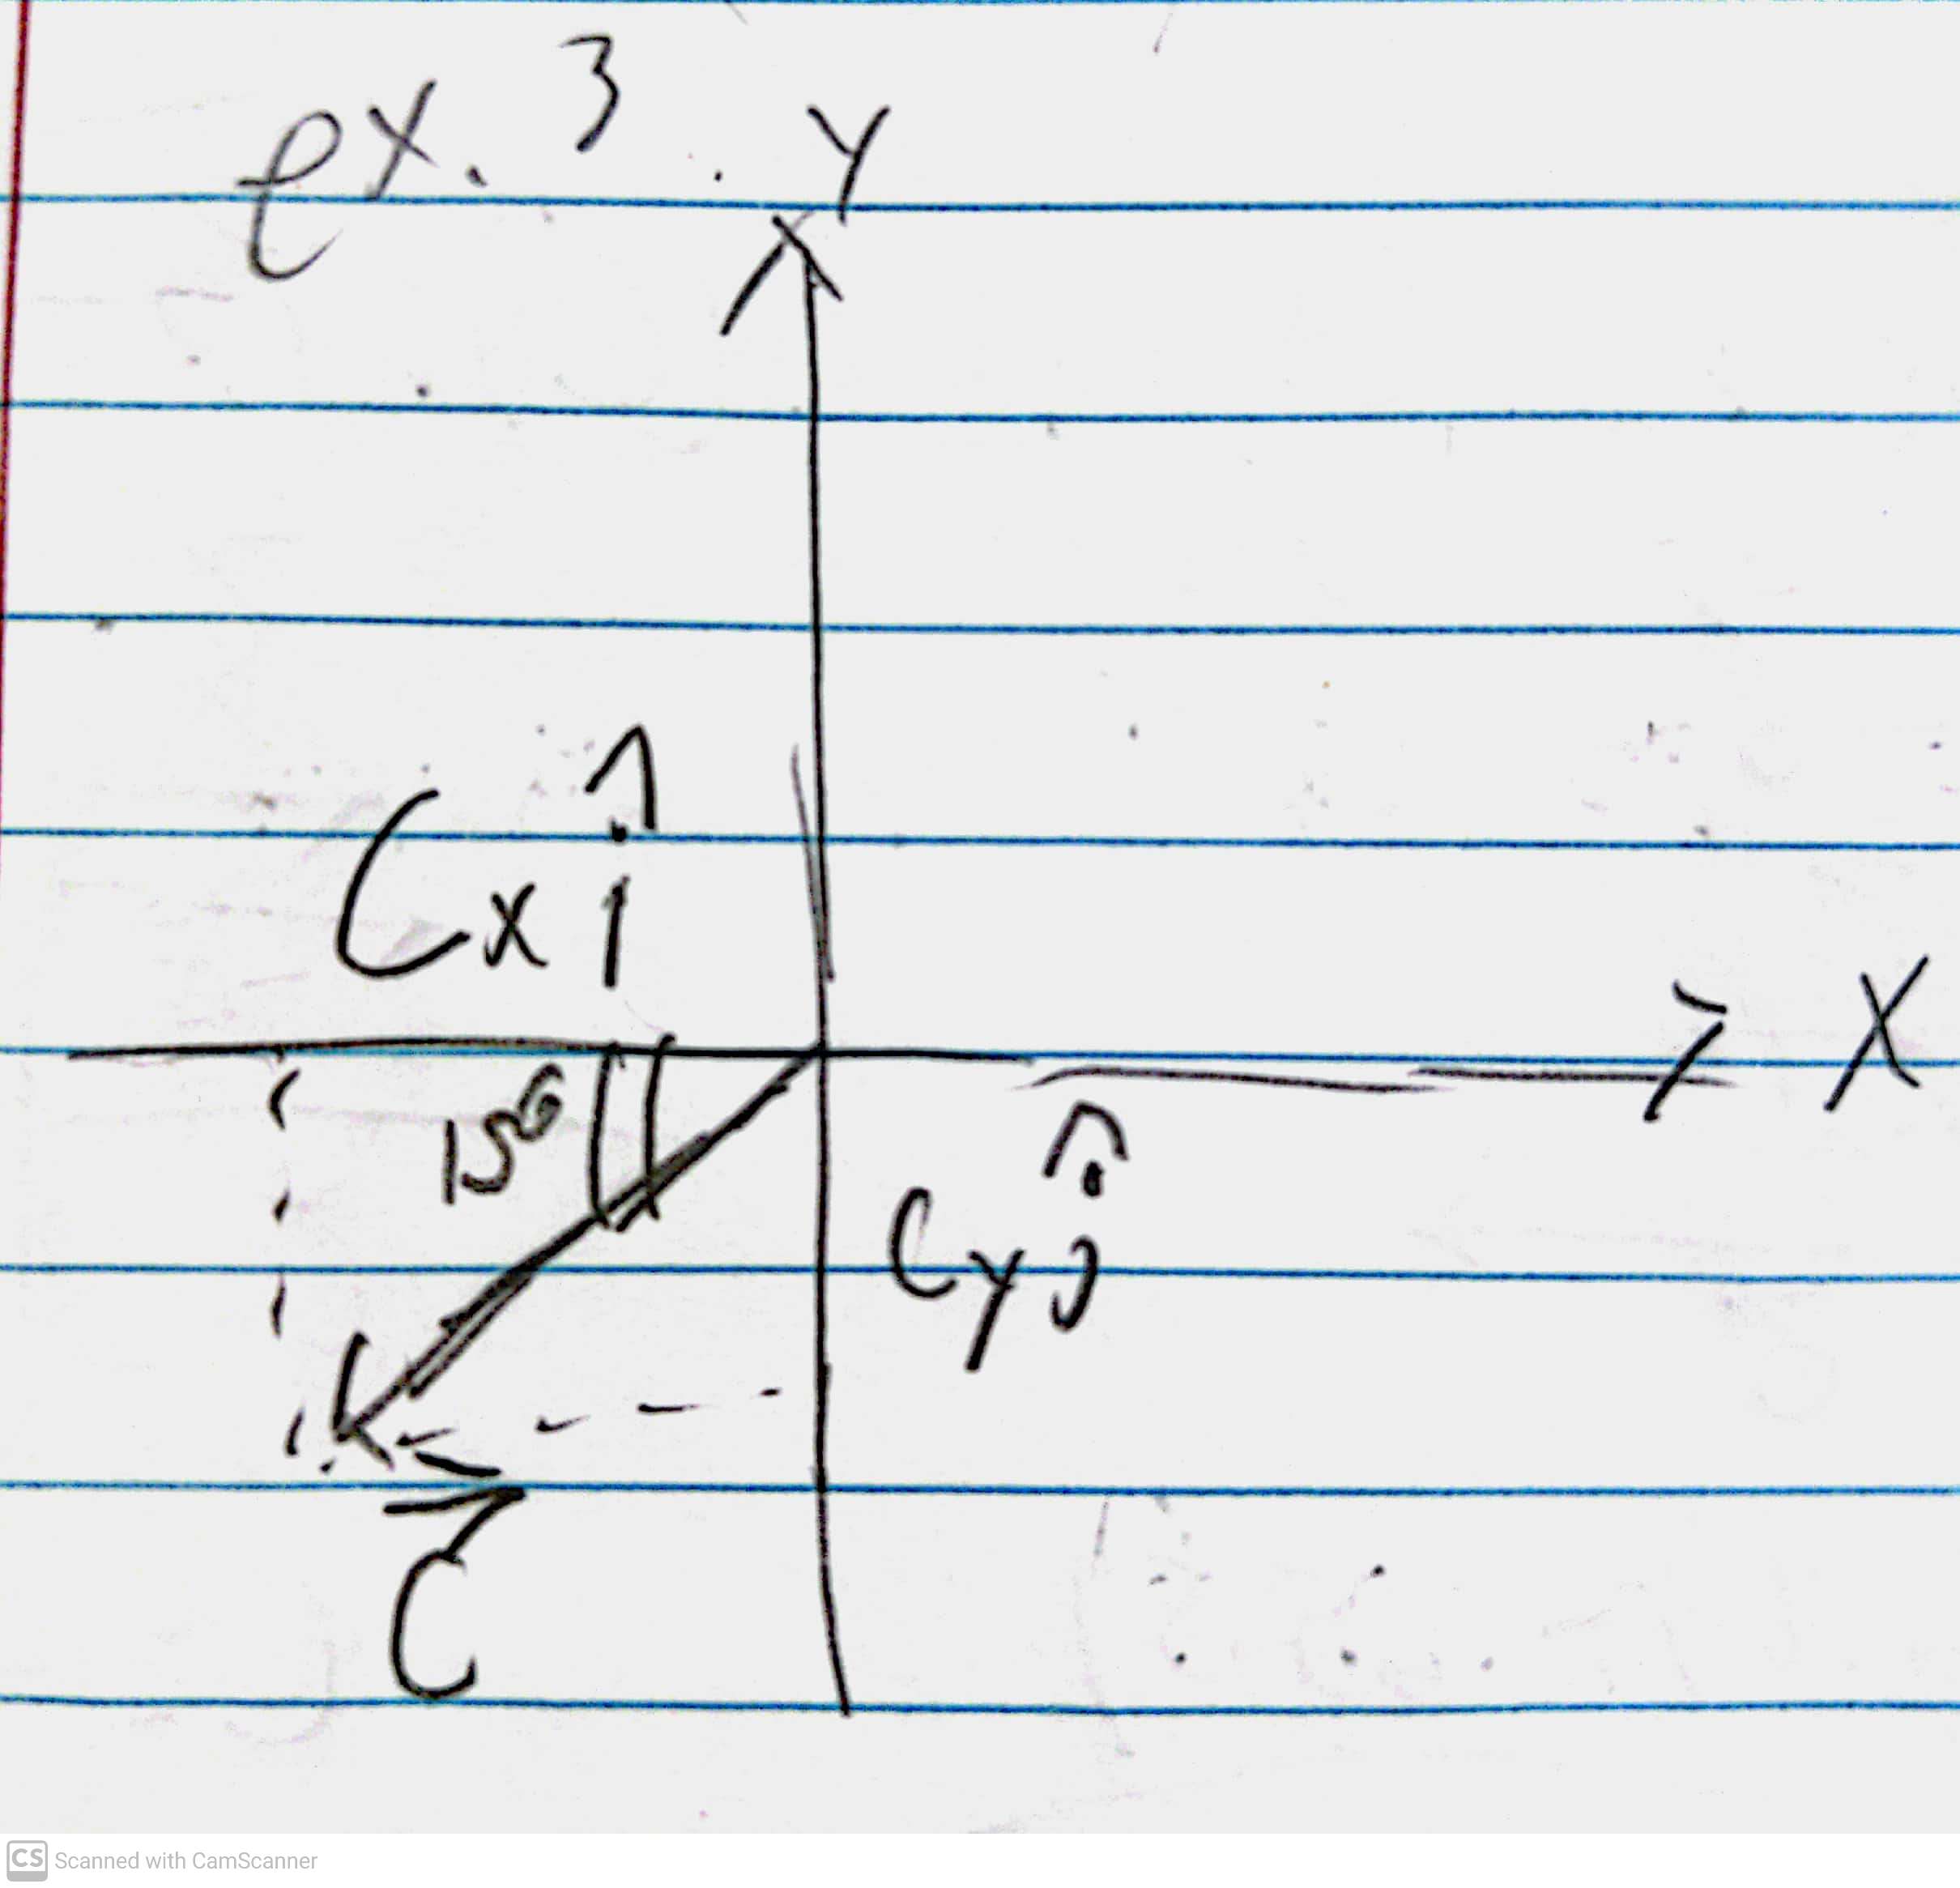 ex. 3
Y
Cx î
X
15°
Cy ĵ
C⃗
CS Scanned with CamScanner